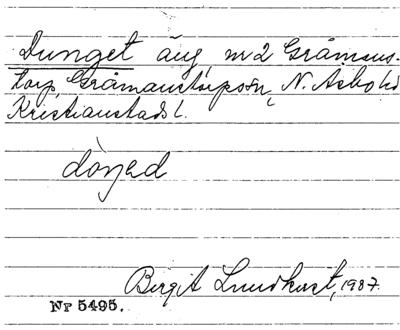 Dunget äng, nr 2 Gråmans-
torp, Gråmanstorps sn, N. Asbo hd
Kristianstads l.
Birgit Lundkvist, 1987.
Nr 5495.